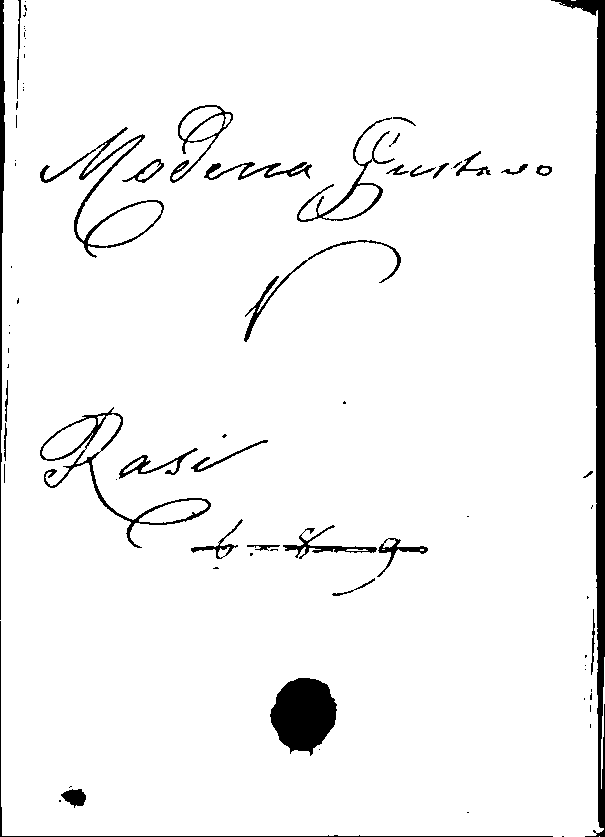 Modena Gustavo
V
Rasi
6-8-9